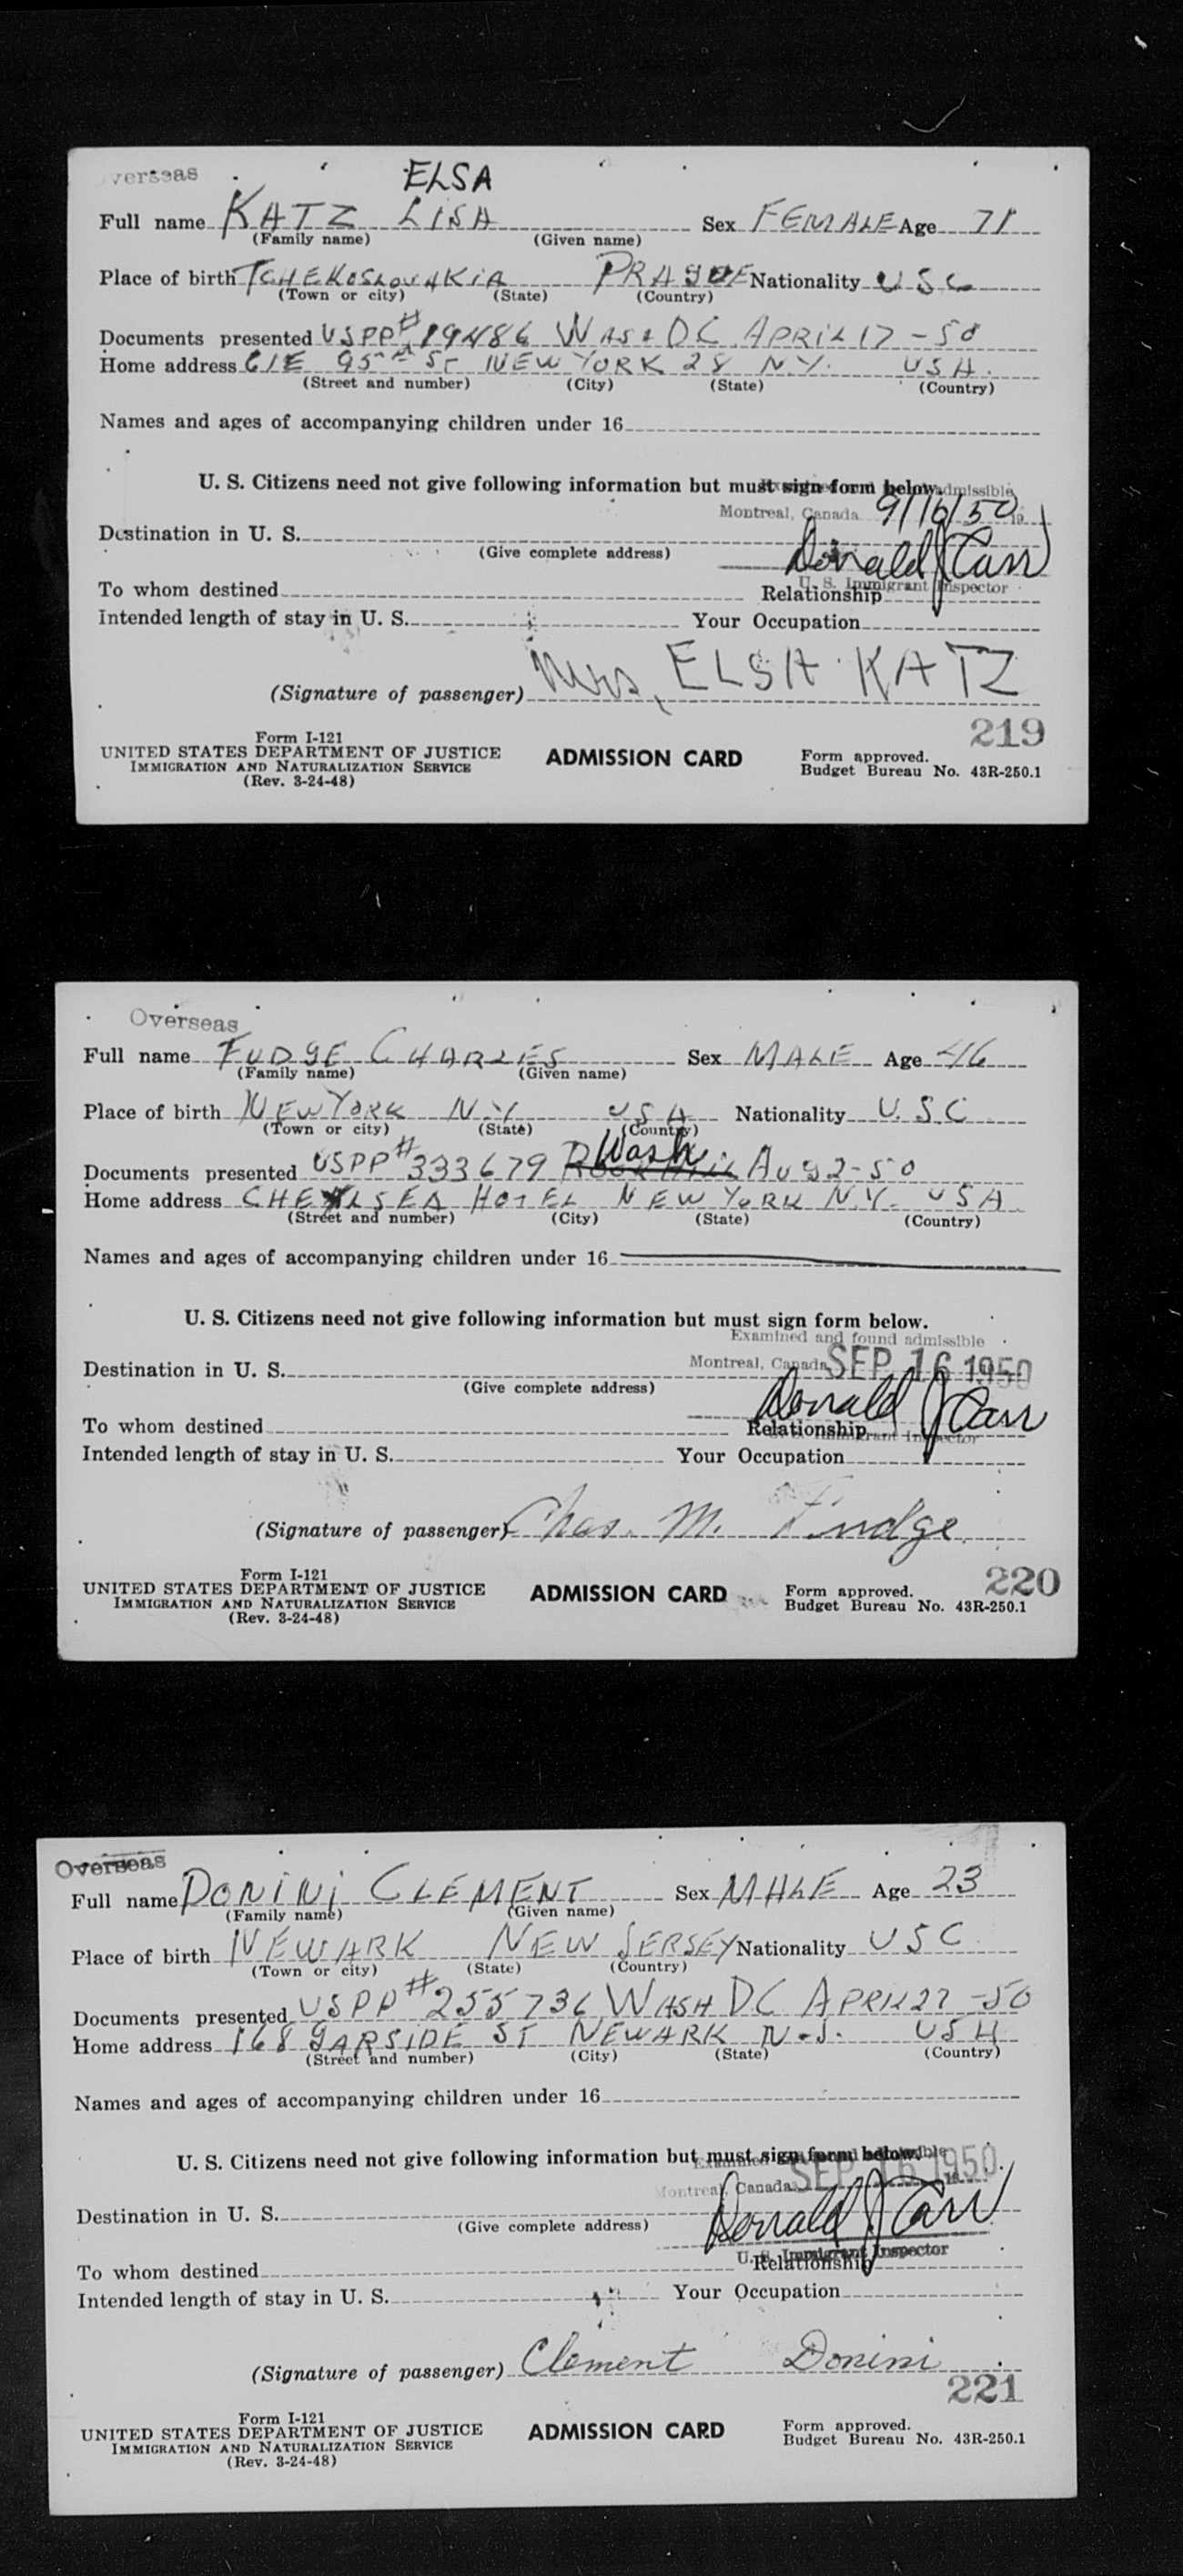 verseas
ELSA
Full name KATZ LISA Sex FEMALE Age 71
(Family name) (Given name)
Place of birth TCHEKOSLOVAKIA PRAGUE Nationality USC
(Town or city) (State) (Country)
Documents presented USPP # 19486 WASH DC APRIL 17-50
Home address 61E 95TH ST NEW YORK 28 N.Y. USA.
(Street and number) (City) (State) (Country)
Names and ages of accompanying children under 16
U. S. Citizens need not give following information but must sign form below.
admissible
Montreal, Canada 9/16/50 19
Destination in U. S.
(Give complete address)
Donald J Carr
U. S. Immigrant Inspector
To whom destined Relationship
Intended length of stay in U. S. Your Occupation
(Signature of passenger) Mrs. ELSA KATZ
219
Form I-121
UNITED STATES DEPARTMENT OF JUSTICE
IMMIGRATION AND NATURALIZATION SERVICE
(Rev. 3-24-48)
ADMISSION CARD
Form approved.
Budget Bureau No. 43R-250.1
Overseas
Full name FUDGE CHARLES Sex MALE Age 46
(Family name) (Given name)
Place of birth NEW YORK N.Y USA Nationality U.S.C
(Town or city) (State) (Country)
Wash
Documents presented USPP # 333679 Aug 2-50
Home address CHELSEA HOTEL NEW YORK N.Y. USA
(Street and number) (City) (State) (Country)
Names and ages of accompanying children under 16
U. S. Citizens need not give following information but must sign form below.
Examined and found admissible
Montreal, Canada SEP 16 1950
Destination in U. S.
(Give complete address)
Donald J Carr
To whom destined Relationship
Immigrant Inspector
Intended length of stay in U. S. Your Occupation
(Signature of passenger) Chas. M. Fudge
220
Form I-121
UNITED STATES DEPARTMENT OF JUSTICE
IMMIGRATION AND NATURALIZATION SERVICE
(Rev. 3-24-48)
ADMISSION CARD
Form approved.
Budget Bureau No. 43R-250.1
Overseas
Full name DONINI CLEMENT Sex MALE Age 23
(Family name) (Given name)
Place of birth NEWARK NEW JERSEY Nationality USC
(Town or city) (State) (Country)
Documents presented USPP # 255736 WASH DC APRIL 27-50
Home address 168 GARSIDE ST NEWARK N.J. USA
(Street and number) (City) (State) (Country)
Names and ages of accompanying children under 16
U. S. Citizens need not give following information but must sign form below.
Montreal, Canada SEP 16 1950
Destination in U. S.
(Give complete address)
Donald J Carr
U. S. Immigrant Inspector
To whom destined Relationship
Intended length of stay in U. S. Your Occupation
(Signature of passenger) Clement Donini
221
Form I-121
UNITED STATES DEPARTMENT OF JUSTICE
IMMIGRATION AND NATURALIZATION SERVICE
(Rev. 3-24-48)
ADMISSION CARD
Form approved.
Budget Bureau No. 43R-250.1